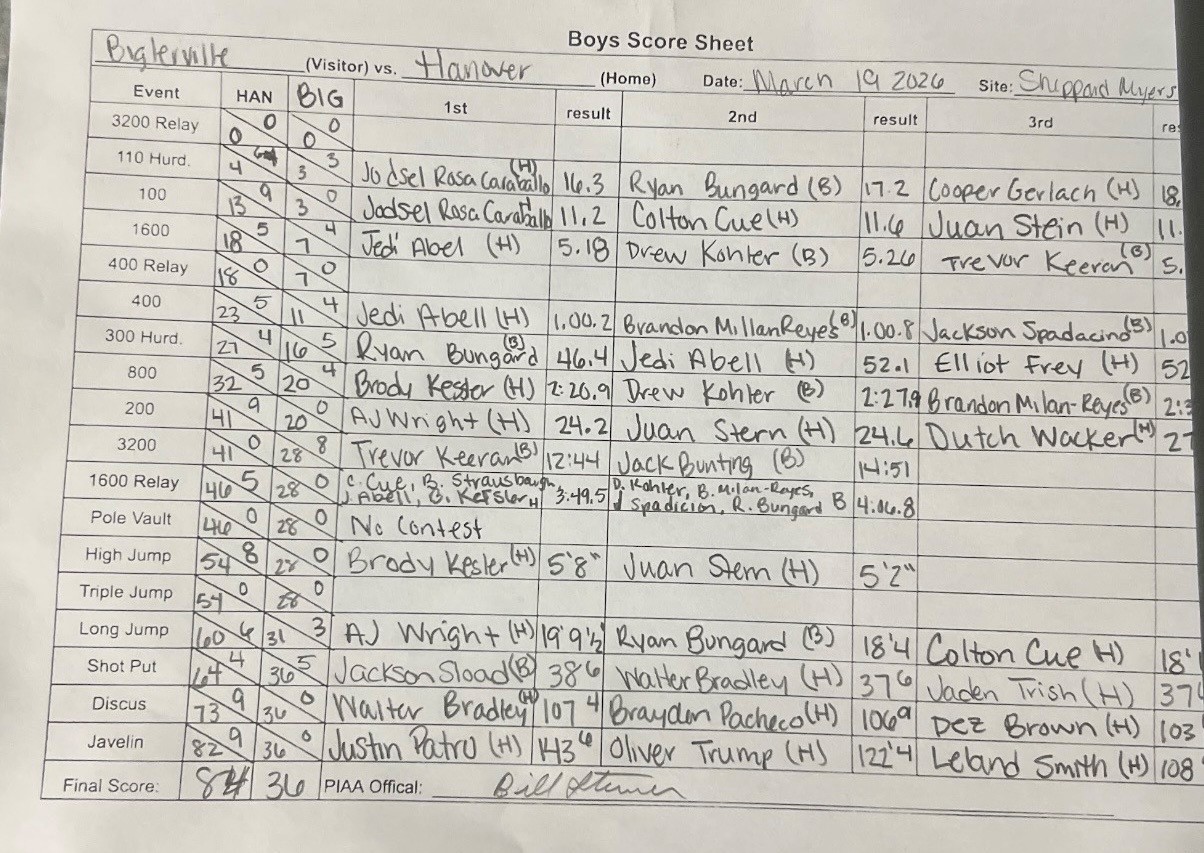 Boys Score Sheet
Biglerville (Visitor) vs. Hanover (Home) Date: March 19 2026 Site: Shippard Myers
Event HAN BIG 1st result 2nd result 3rd re
3200 Relay 0 0 0 0
110 Hurd. 4 3 3 Jodsel Rosa Caraballo (H) 16.3 Ryan Bungard (B) 17.2 Cooper Gerlach (H) 18.
100 13 9 3 0 Jodsel Rosa Caraballo H 11.2 Colton Cue (H) 11.6 Juan Stein (H) 11.
1600 18 5 7 4 Jedi Abel (H) 5.18 Drew Kohler (B) 5.26 Trevor Keeran (B) 5.
400 Relay 18 0 7 0
400 23 5 11 4 Jedi Abell (H) 1.00.2 Brandon Millan Reyes (B) 1.00.8 Jackson Spadacino (B) 1.0
300 Hurd. 27 4 16 5 Ryan Bungard (B) 46.4 Jedi Abell (H) 52.1 Elliot Frey (H) 52
800 32 5 20 4 Brody Kesler (H) 2:26.9 Drew Kohler (B) 2:27.9 Brandon Milan-Reyes (B) 2:3
200 41 9 20 0 AJ Wright (H) 24.2 Juan Stern (H) 24.6 Dutch Wacker (H) 27
3200 41 0 28 8 Trevor Keeran (B) 12:44 Jack Bunting (B) 14:51
1600 Relay 46 5 28 0 C. Cue, B. Strausbaugh, J. Abell, B. Kesler H 3:49.5 D. Kohler, B. Milan-Reyes, J Spadicion, R. Bungard B 4:06.8
Pole Vault 46 0 28 0 No Contest
High Jump 54 8 28 0 Brody Kesler (H) 5'8" Juan Stern (H) 5'2"
Triple Jump 54 0 28 0
Long Jump 60 6 31 3 AJ Wright (H) 19'9½ Ryan Bungard (B) 18'4 Colton Cue H) 18'
Shot Put 64 4 36 5 Jackson Sload (B) 38 6 Walter Bradley (H) 37 6 Jaden Trish (H) 37
Discus 73 9 36 0 Walter Bradley (H) 107 4 Brayden Pacheco (H) 106 9 Dez Brown (H) 103
Javelin 82 9 36 0 Justin Patru (H) 143 6 Oliver Trump (H) 122'4 Leland Smith (H) 108
Final Score: 84 36 PIAA Offical: Bill